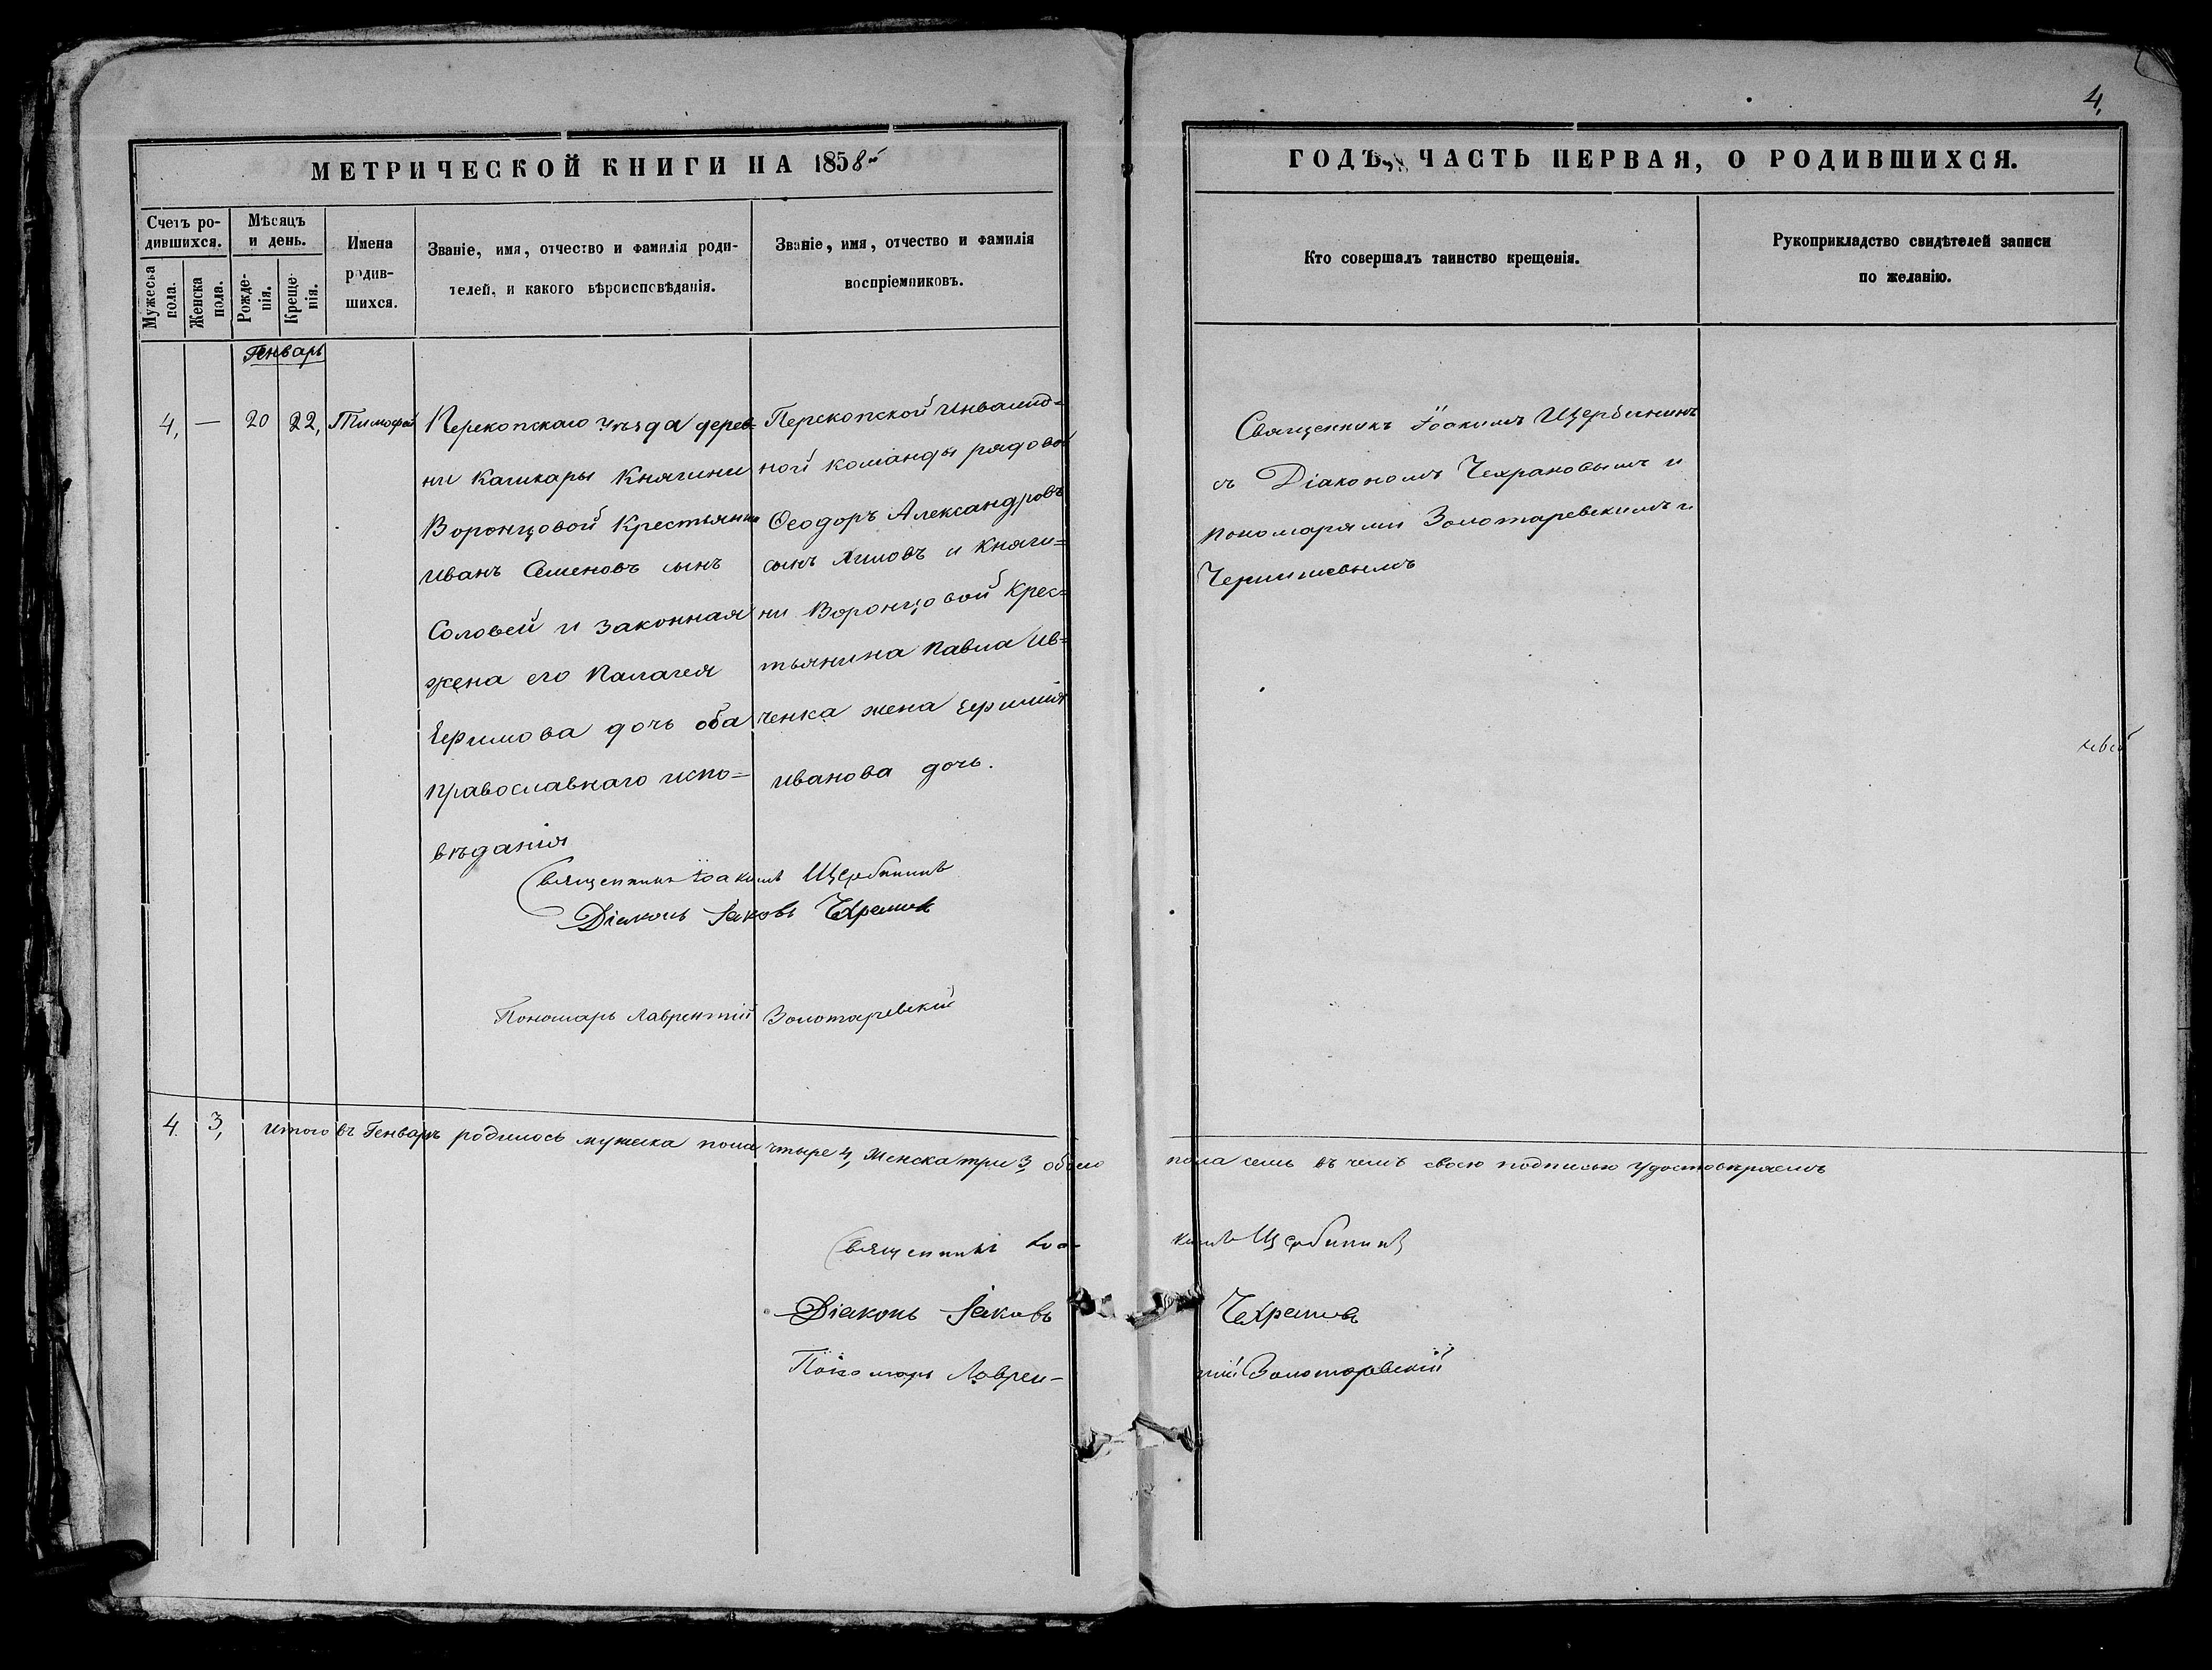 4,
МЕТРИЧЕСКОЙ КНИГИ НА 1858й
ГОДЪ, ЧАСТЬ ПЕРВАЯ, О РОДИВШИХСЯ.
Счетъ ро-
дившихся.
Мужеска
пола.
Женска
пола.
Мѣсяцъ
и день.
Рожде-
нія.
Креще-
нія.
Имена
родив-
шихся.
Званіе, имя, отчество и фамилія роди-
телей, и какого вѣроисповѣданія.
Званіе, имя, отчество и фамилія
воспріемниковъ.
Кто совершалъ таинство крещенія.
Рукоприкладство свидѣтелей записи
по желанію.
Генварь
4, — 20 22, Тимофей
Перекопскаго уѣзда дерев-
ни Кашкары Княгини
Воронцовой Крестьянинъ
Иванъ Семеновъ сынъ
Соловей и законная
жена его Палагея
Ефимова дочь оба
православнаго испо=
вѣданія
Перекопской Инвалид=
ной команды рядовой
Ѳеодоръ Александровъ
сынъ Хиловъ и Княги=
ни Воронцовой Крес=
тьянина Павла Ив=
ченка жена Ефимія
Иванова дочь.
Священникъ Іоакимъ Щербининъ
съ Діакономъ Чехрановымъ и
пономарями Золотаревскимъ и
Чернишевымъ
Священникъ Іоакимъ Щербининъ
Діаконъ Іаковъ
Пономарь Лаврентій Золотаревскій
4. 3, Итого въ Генварѣ родилось мужеска пола чтыре 4, Женска три 3, обоего пола семь въ чемъ свою подписью удостовѣряемъ
Священникъ Іоа- кимъ Щербининъ
Діаконъ Іаковъ
Пономарь Лаврен- тій Золотаревскій